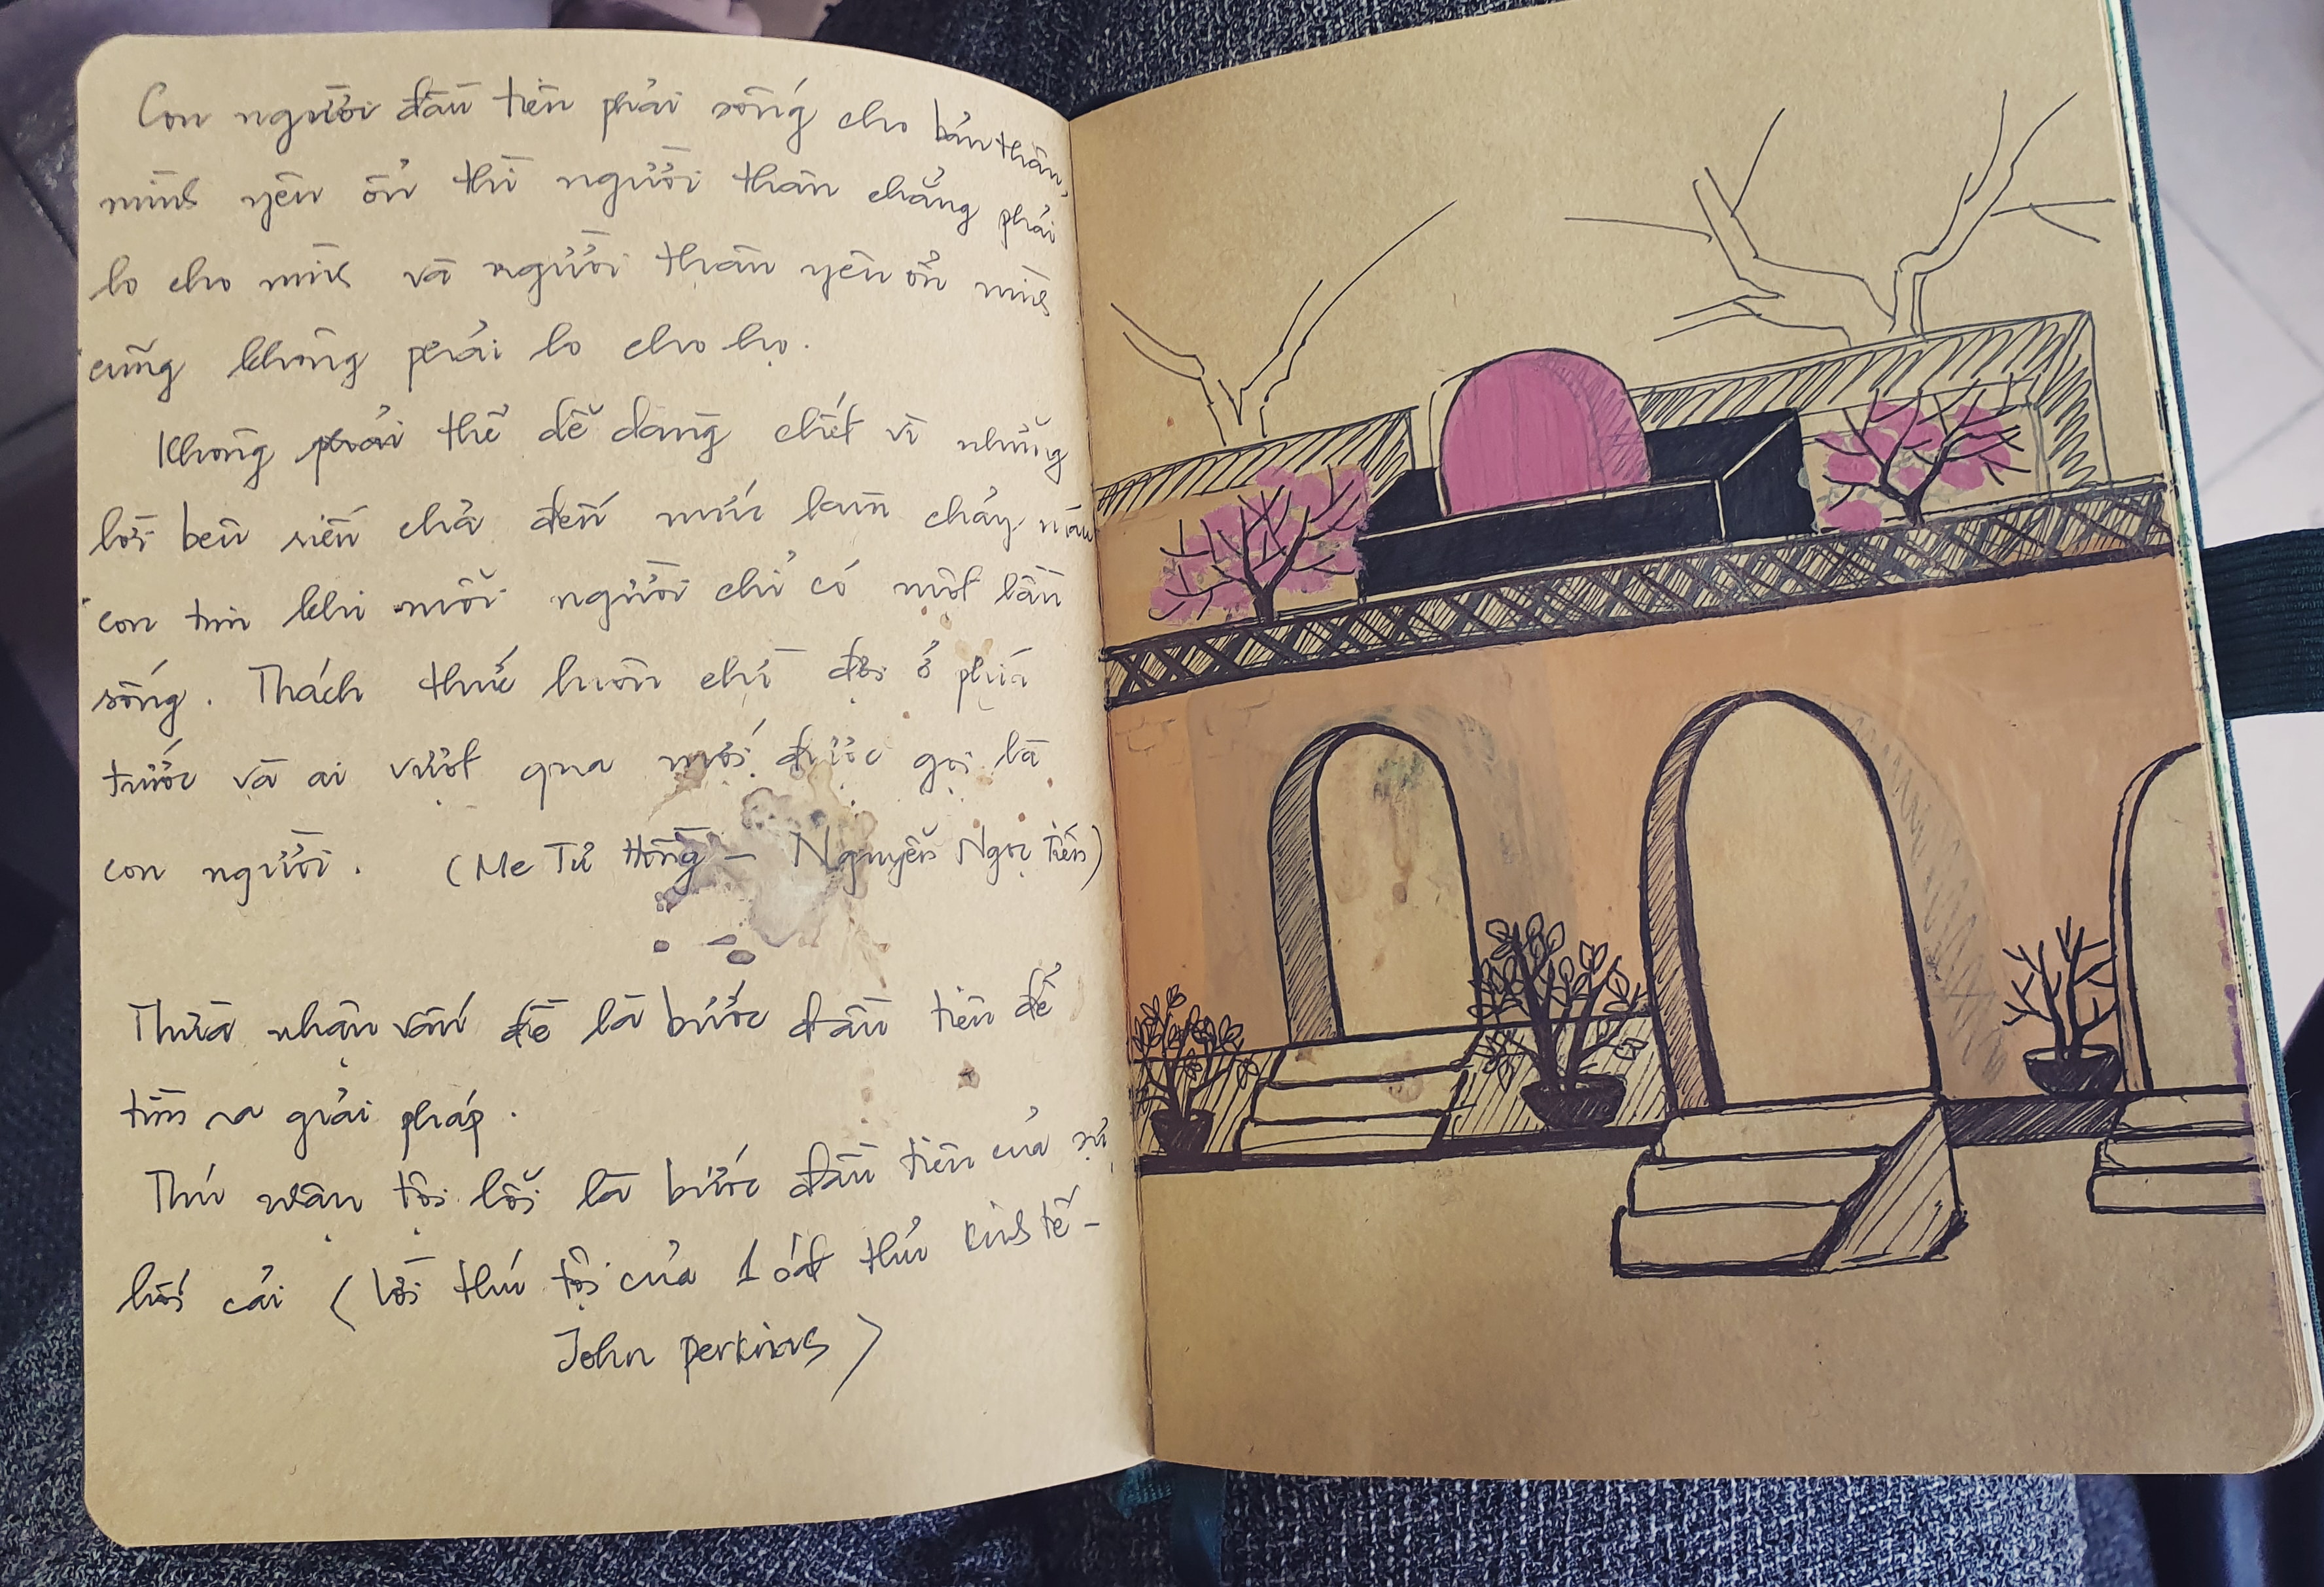 Con người đầu tiên phải sống cho bản thân,
mình yên ổn thì người thân chẳng phải
lo cho mình và người thân yên ổn mình
cũng không phải lo cho họ.
Không phải thế dễ dàng chết vì những
lời bên siến chả đến mức làm chảy máu
con tim khi mỗi người chỉ có một lần
sống. Thách thức luôn chờ đợi ở phía
trước và ai vượt qua mới được gọi là
con người. (Me Tư Hồng - Nguyễn Ngọc Tiến)
Thừa nhận vấn đề là bước đầu tiên để
tìm ra giải pháp.
Thú nhận tội lỗi là bước đầu tiên của sự
hối cải (Lời thú tội của 1 sát thủ kinh tế -
John perkins)